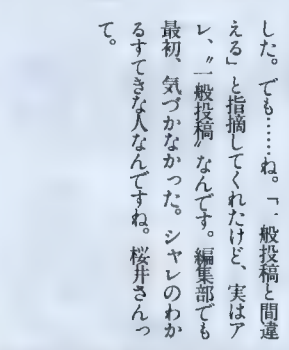 した。でも……ね。「一般投稿と間違
える」と指摘してくれたけど、実はア
レ、〝一般投稿〟なんです。編集部でも
最初、気づかなかった。シャレのわか
るすてきな人なんですね。桜井さんっ
て。